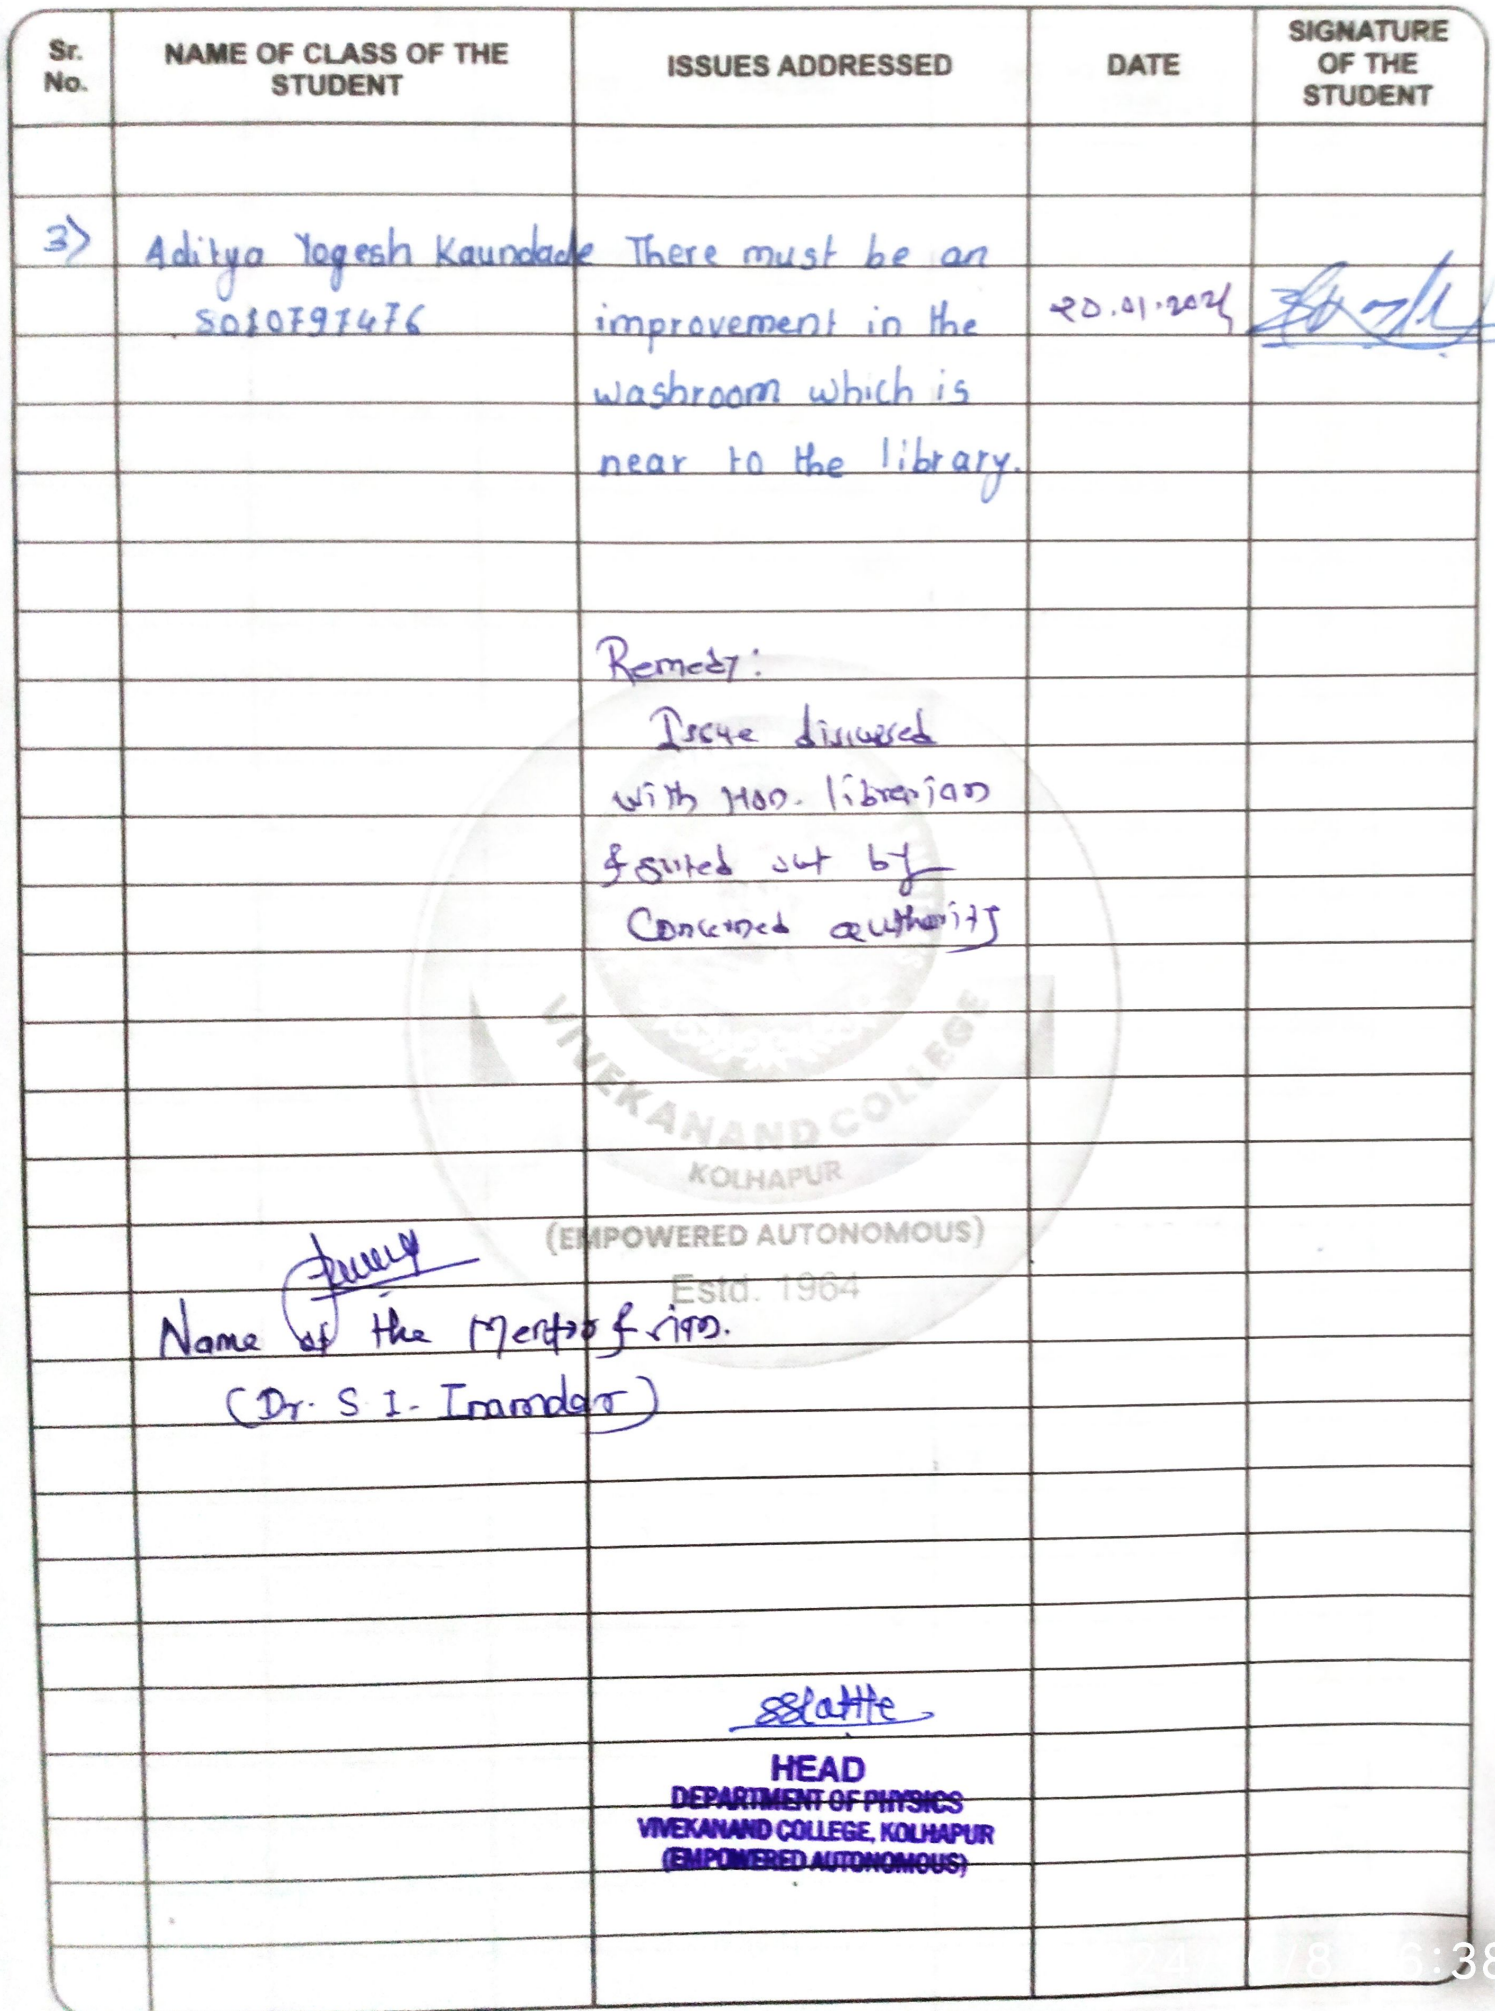 Sr. No.
NAME OF CLASS OF THE STUDENT
ISSUES ADDRESSED
DATE
SIGNATURE OF THE STUDENT
3) Aditya Yogesh Kaundade There must be an
improvement in the
washroom which is
near to the library.
Remedy:
Issue discussed
with Hon. librarian
& sorted out by
Concerned authority
VIVEKANAND COLLEGE
KOLHAPUR
(EMPOWERED AUTONOMOUS)
Estd. 1964
Name of the Mentor & sign.
(Dr. S. I. Inamdar)
HEAD
DEPARTMENT OF PHYSICS
VIVEKANAND COLLEGE, KOLHAPUR
(EMPOWERED AUTONOMOUS)